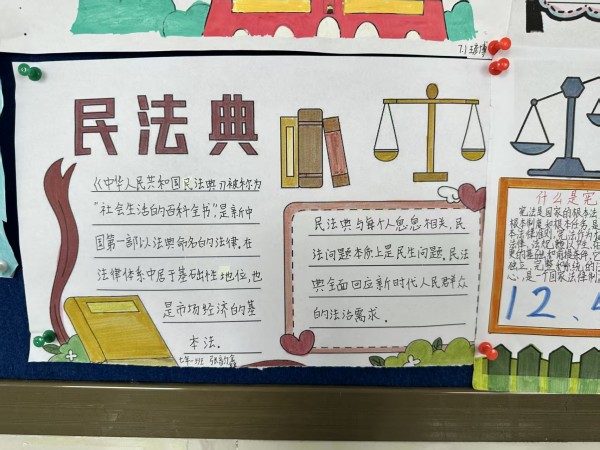 7.1
民法典
《中华人民共和国民法典》被称为
“社会生活的百科全书”,是新中
国第一部以法典命名的法律.在
法律体系中居于基础性地位,也
是市场经济的基
本法.
七年一班
民法典与每个人息息相关,民
法问题本质上是民生问题.民法
典全面回应新时代人民群众
的法治需求.
什么是宪
宪法是国家的根本法
12.